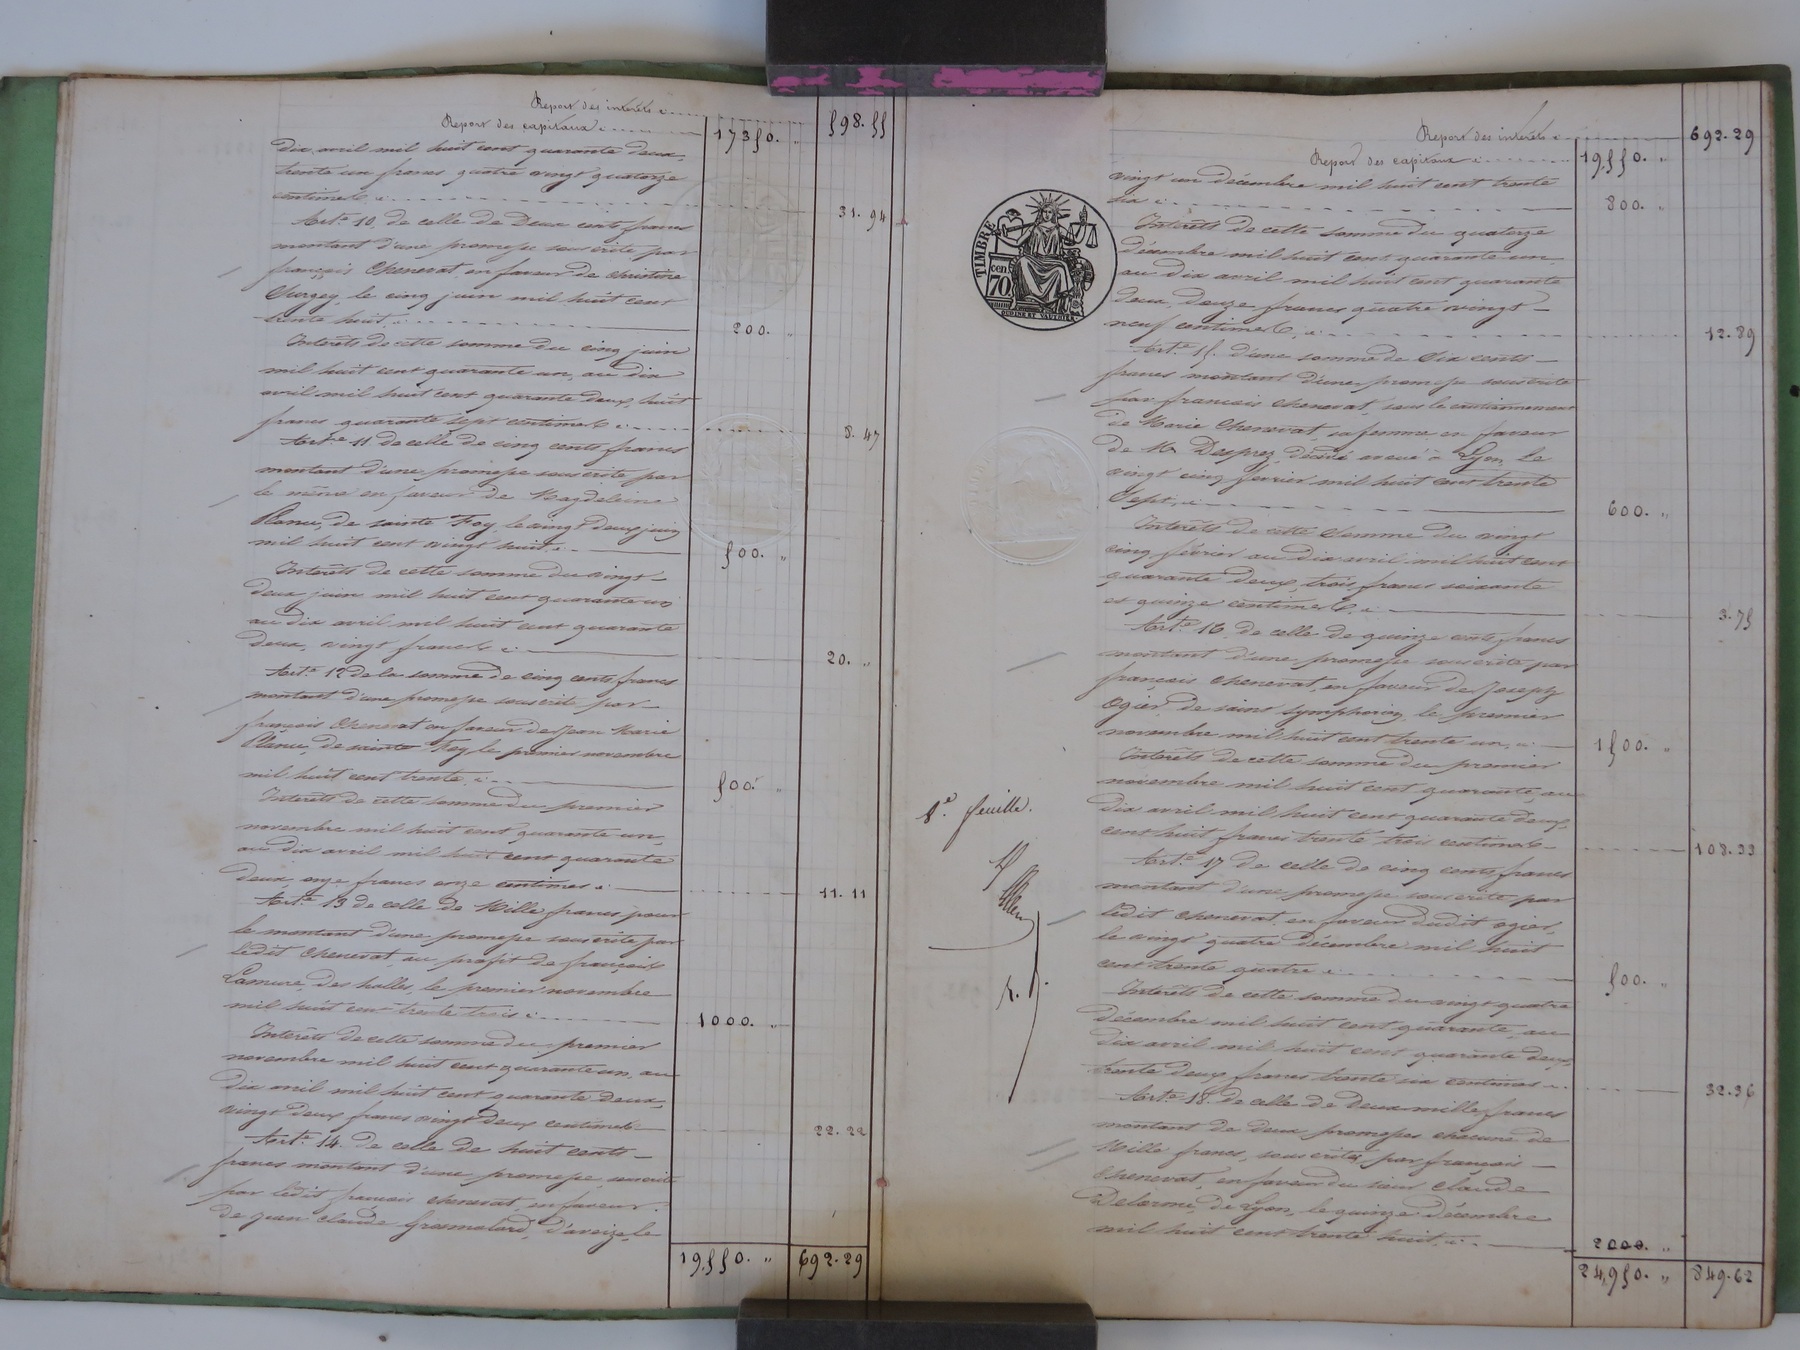 Report des intérêts c. 598.55
Report des capitaux c. 17350. "
dix avril mil huit cent quarante deux,
trente un francs quatre vingt quatorze
centimes c. 31.94
Art.e 10, de celle de Deux cents francs
montant d'une promesse souscrite par
françois Chenevat en faveur de christine
Surgey, le cinq juin mil huit cent
trente huit, c. 200. "
Intérêts de cette somme du cinq juin
mil huit cent quarante un, au dix
avril mil huit cent quarante deux, huit
francs quarante sept centimes c. 8.47
Art.e 11 de celle de cinq cents francs
montant d'une promesse souscrite par
le même en faveur de Magdeleine
de sainte Foy, le vingt deux juin
mil huit cent vingt huit. c. 500. "
Intérêts de cette somme du vingt
deux juin mil huit cent quarante un
au dix avril mil huit cent quarante
deux, vingt francs c. 20. "
Art.e 12 de la somme de cinq cents francs
montant d'une promesse souscrite par
françois Chenevat en faveur de Jean Marie
de sainte Foy le premier novembre
mil huit cent trente c. 500. "
Intérêts de cette somme du premier
novembre mil huit cent quarante un,
au dix avril mil huit cent quarante
deux onze francs onze centimes c. 11.11
Art.e 13 de celle de Mille francs pour
le montant d'une promesse souscrite par
ledit Chenevat, au profit de françois
Lamure, des halles, le premier novembre
mil huit cent trente trois c. 1000. "
Intérêts de cette somme du premier
novembre mil huit cent quarante un, au
dix avril mil huit cent quarante deux,
vingt deux francs vingt deux centimes 22.22
Art.e 14. de celle de huit cents
francs montant d'une promesse, souscrite
par ledit françois chenevat, en faveur
de jean claude Grosmolard, d'aveize, le
19.550. " 692.29
Report des intérêts c. 692.29
Report des capitaux c. 19.550. "
vingt un décembre mil huit cent trente
six c. 800. "
Intérêts de cette somme du quatorze
décembre mil huit cent quarante un,
au dix avril mil huit cent quarante
deux, douze francs quatre vingt
neuf centimes, c. 12.89
Art.e 15. d'une somme de Six cents
francs montant d'une promesse souscrite
par francois chenevat, sous le cautionnement
de Marie Chenevat, sa femme en faveur
de Mr Desprez, décédé avoué à Lyon, le
vingt cinq février mil huit cent trente
sept, c. 600. "
Intérêts de cette Somme du vingt
cinq février au dix avril mil huit cent
quarante deux, trois francs soixante
et quinze centimes, c. 3.75
Art.e 16. de celle de quinze cents francs
montant d'une promesse souscrite par
françois chenevat, en faveur de Joseph
Ogier de saint symphorien, le premier
novembre mil huit cent trente un, c. 1500. "
Intérêts de cette somme du premier
novembre mil huit cent quarante, au
dix avril mil huit cent quarante deux,
cent huit francs trente trois centimes 108.33
Art.e 17 de celle de cinq cents francs
montant d'une promesse souscrite par
ledit chenevat en faveur dudit ogier,
le vingt quatre décembre mil huit
cent trente quatre c. 500. "
Intérêts de cette somme du vingt quatre
décembre mil huit cent quarante, au
dix avril mil huit cent quarante deux,
trente deux francs trente six centimes c. 32.36
Art.e 18. de celle de Deux mille francs
montant de deux promesses chacune de
Mille francs, souscrites par françois
Chenevat, en faveur du sieur claude
Delorme, de Lyon, le quinze décembre
mil huit cent trente huit, c. 2000. "
24,950. " 849.62
TIMBRE
cen
70.
OUDINE ET VAUTHIER
5.e feuille.